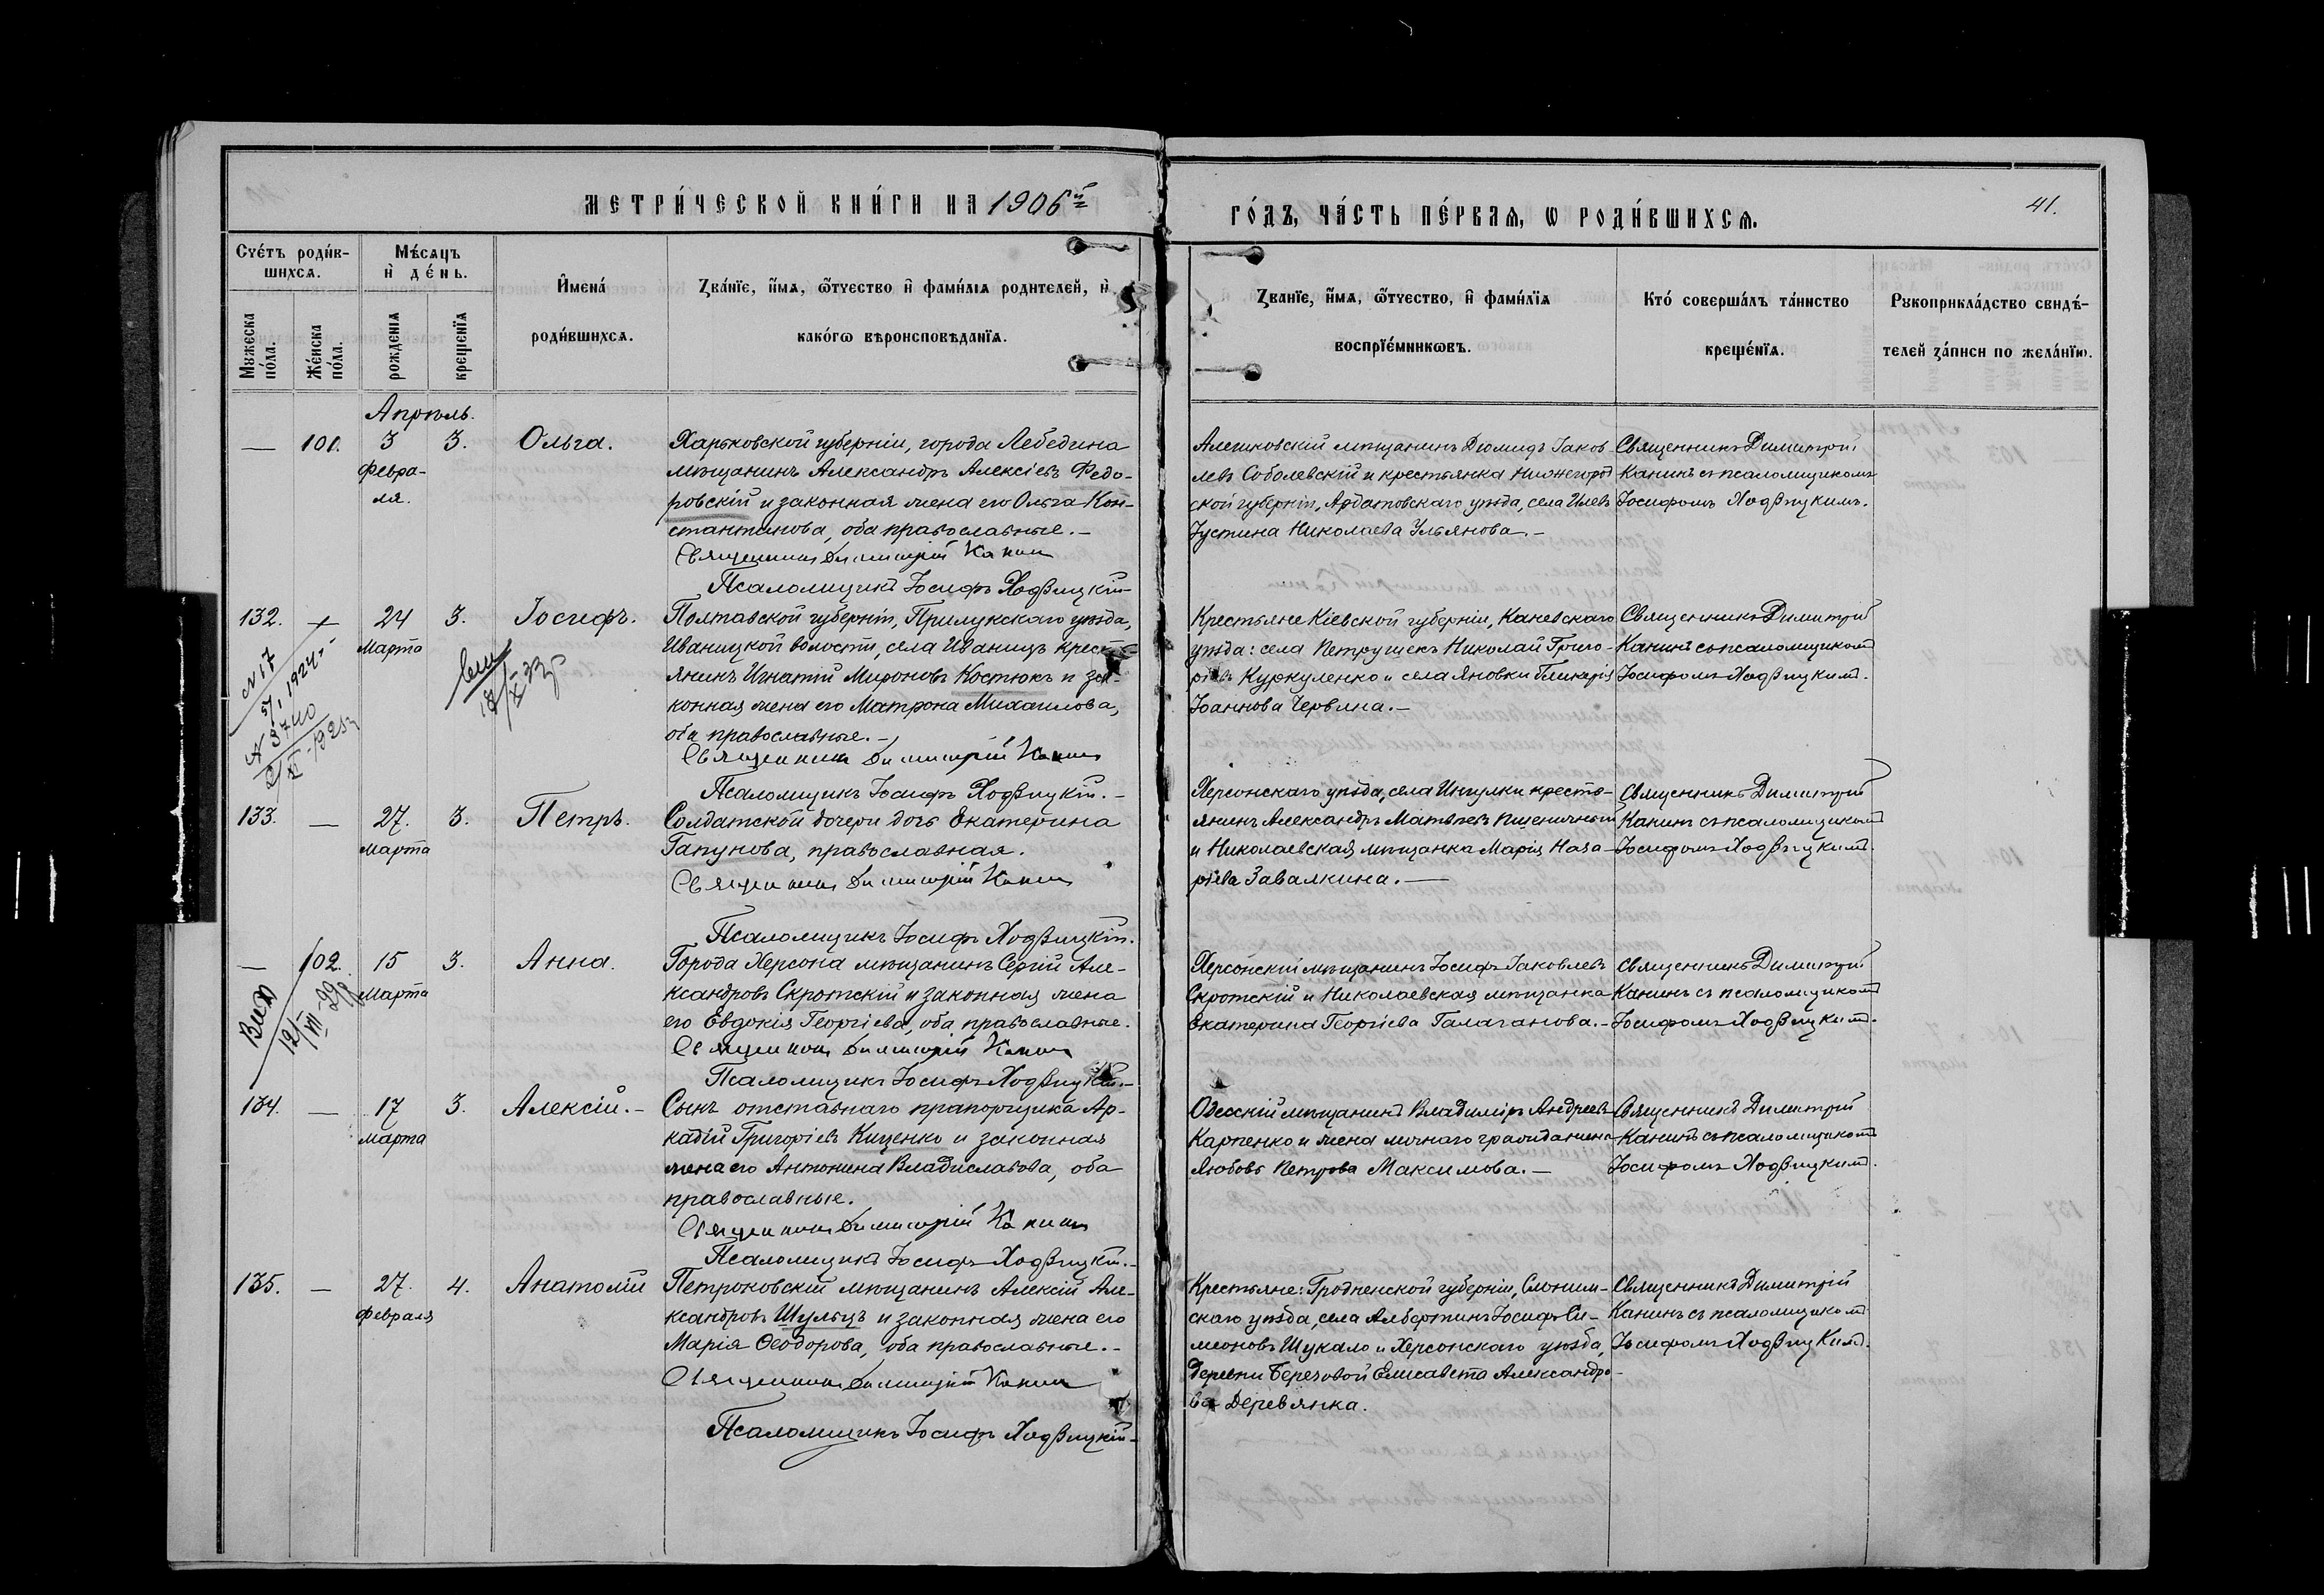 МЕТРИ́ЧЕСКОЙ КНИ́ГИ НА 1906й
ГО́ДЪ, ЧА́СТЬ ПЕ́РВАѦ, Ѡ РОДИ́ВШИХСѦ.
41.
Сче́тъ роди́в-
шихсѧ.
Мужеска по́ла.
Же́нска по́ла.
Мѣ́сѧцъ
и҆ де́нь.
рожденіѧ
крещенїѧ
И҆мена́
роди́вшихсѧ.
Зва́нїе, и҆́мѧ, ѻ҆́тчество и҆ фами́лїѧ родителей, и҆
како́гѡ вѣроисповѣданїѧ.
Званїе, и҆́мѧ, ѻ҆́тчество, и҆ фами́лїѧ
воспрїе́мникѡвъ.
Кто́ соверша́лъ та́инство
креще́нїѧ.
Рукоприкла́дство свидѣ́-
телей за́писи по жела́нїю.
Апрѣль.
— 101. 3 3. Ольга.
Февра-
ля.
Харьковской губерніи, города Лебедина
мѣщанинъ Александръ Алексіевъ Федо-
ровскій и законная жена его Ольга Кон-
стантинова, оба православные.-
Священникъ Димитрій Канинъ
Псаломщикъ Іосифъ Ходвицкій
Алешковскій мѣщанинъ Діомидъ Іаков-
левъ Соболевскій и крестьянка Нижегород-
ской губерніи, Ардатовскаго уѣзда, села
Іустина Николаева Ульянова.-
Священникъ Димитрій
Канинъ съ псаломщикомъ
Іосифомъ Ходвицкимъ.
132. 24 3. Іосифъ.
Марта
N 17
5/I 1924 г
N 3740
Полтавской губерніи, Прилукскаго уѣзда,
Иваницкой волости, села Иваницъ крест-
янинъ Игнатій Мироновъ Костюкъ и за-
конная жена его Матрона Михаилова,
оба православные.-
Священникъ Димитрій Канинъ
Псаломщикъ Іосифъ Ходвицкій.-
Крестьяне Кіевской губерніи, Каневскаго
уѣзда: села Петрушекъ Николай Григо-
ріевъ Куркуленко и села Яновки Гликерія
Іоаннова Червина.-
Священникъ Димитрій
Канинъ съ псаломщикомъ
Іосифомъ Ходвицкимъ.
133. — 27. 3. Петръ.
Марта
Солдатской дочери дочь Екатерина
Гапунова, православная.
Священникъ Димитрій Канинъ
Псаломщикъ Іосифъ Ходвицкій.
Херсонскаго уѣзда, села Ингулки кресть-
янинъ Александръ Матвѣевъ Пшеничный
и Николаевская мѣщанка Марія Наза-
ріева Завалкина.—
Священникъ Димитрій
Канинъ съ псаломщикомъ
Іосифомъ Ходвицкимъ.
— 102. 15 3. Анна.
Марта
Города Херсона мѣщанинъ Сергій Але-
ксандровъ Скротскій и законная жена
его Евдокія Георгіева, оба православные.
Священникъ Димитрій Канинъ
Псаломщикъ Іосифъ Ходвицкій.-
Херсонскій мѣщанинъ Іосифъ Іаковлевъ
Скротскій и Николаевская мѣщанка
Екатерина Георгіева Галаганова.-
Священникъ Димитрій
Канинъ съ псаломщикомъ
Іосифомъ Ходвицкимъ.
134. — 17 3. Алексій.-
Марта
Сынъ отставнаго прапорщика Ар-
кадій Григоріевъ Киценко и законная
жена его Антонина Владиславова, оба
православные.
Священникъ Димитрій Канинъ
Псаломщикъ Іосифъ Ходвицкій.-
Одесскій мѣщанинъ Владиміръ Андреевъ
Карпенко и жена личнаго гражданина
Любовь Петрова Максимова.-
Священникъ Димитрій
Канинъ съ псаломщикомъ
Іосифомъ Ходвицкимъ.
135. — 27. 4. Анатолій
Февраля
Петроковскій мѣщанинъ Алексій Але-
ксандровъ Шульцъ и законная жена его
Марія Ѳеодорова, оба православные.-
Священникъ Димитрій Канинъ
Псаломщикъ Іосифъ Ходвицкій-
Крестьяне: Гродненской губерніи, Слоним-
скаго уѣзда, села Альбертинъ Іосифъ Си-
меоновъ Шукало и Херсонскаго уѣзда,
деревни Березовой Елисавета Александро-
ва Деревянка.
Священникъ Димитрій
Канинъ съ псаломщикомъ
Іосифомъ Ходвицкимъ.